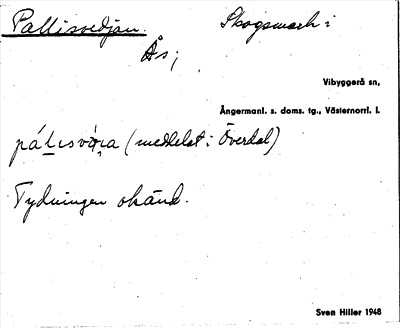 Pallisvedjan. Skogsmark i
Ås,
Vibyggerå sn,
Ångermanl. s. doms. tg., Västernorrl. l.
(meddelat i Överdal)
Tydningen okänd.
Sven Hiller 1948